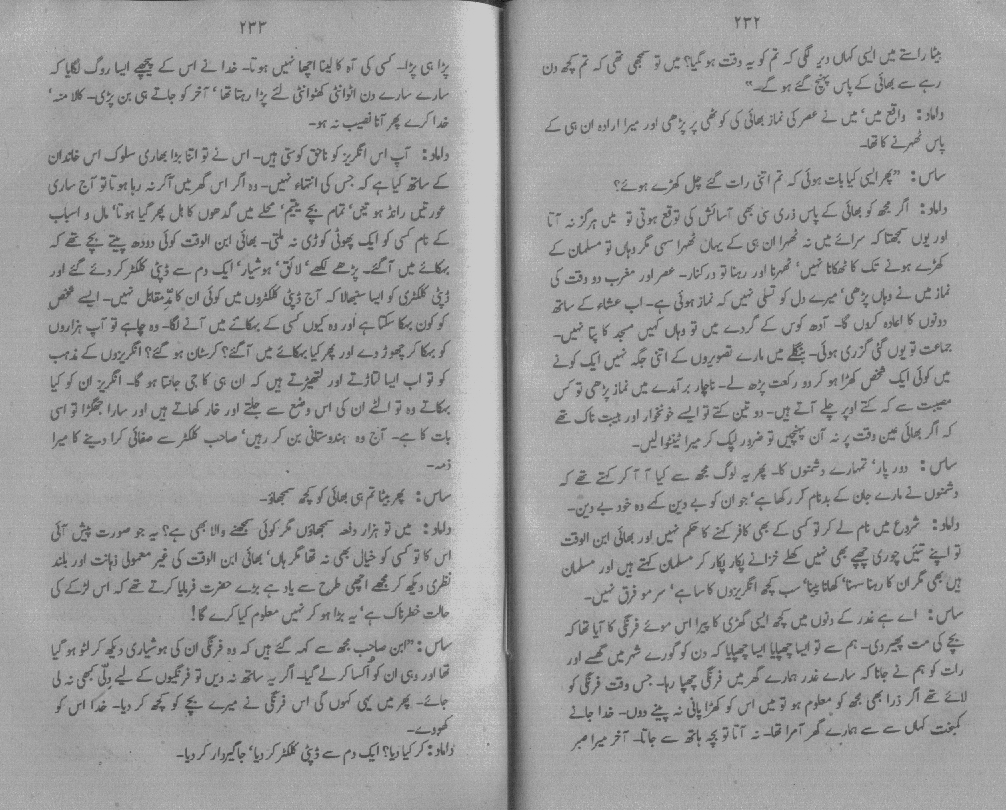 ۲۳۲
بیٹا راستے میں ایسی کہاں دیر لگی کہ تم کو یہ وقت ہو گیا؟ میں تو سمجھی تھی کہ تم کچھ دن
رہے سے بھائی کے پاس پہنچ گئے ہو گے۔"
داماد: واقع میں' میں نے عصر کی نماز بھائی کی کوٹھی پر پڑھی اور میرا ارادہ ان ہی کے
پاس ٹھہرنے کا تھا۔
ساس: "پھر ایسی کیا بات ہوئی کہ تم اتنی رات گئے چل کھڑے ہوئے؟
داماد: اگر مجھ کو بھائی کے پاس ذری سی بھی آسائش کی توقع ہوتی تو میں ہرگز نہ آتا
اور یوں سمجھتا کہ سرائے میں نہ ٹھہرا ان ہی کے یہاں ٹھہرا سہی مگر وہاں تو مسلمان کے
کھڑے ہونے تک کا ٹھکانا نہیں' ٹھہرنا اور رہنا تو درکنار۔ عصر اور مغرب دو وقت کی
نماز میں نے وہاں پڑھی' میرے دل کو تسلی نہیں کہ نماز ہوئی ہے۔ اب عشاء کے ساتھ
دونوں کا اعادہ کروں گا۔ آدھ کوس کے گردے میں تو وہاں کہیں مسجد کا پتا نہیں۔
جماعت تو یوں گئی گزری ہوئی۔ بنگلے میں مارے تصویروں کے اتنی جگہ نہیں ایک کونے
میں کوئی ایک شخص کھڑا ہو کر دو رکعت پڑھ لے۔ ناچار برآمدے میں نماز پڑھی تو کس
مصیبت سے کہ کتے اوپر چلے آتے ہیں۔ دو تین کتے تو ایسے خونخوار اور ہیبت ناک تھے
کہ اگر بھائی عین وقت پر نہ آن پہنچیں تو ضرور لپک کر میرا ٹینٹوا لیں۔
ساس: دور پار' تمہارے دشمنوں کا۔ پھر یہ لوگ مجھ سے کیا آ آ کر کہتے تھے کہ
دشمنوں نے مارے جان کے بدنام کر رکھا ہے' جو ان کو بے دین کہے وہ خود بے دین۔
داماد: شروع میں نام لے کر تو کسی کے بھی کافر کہنے کا حکم نہیں اور بھائی ابن الوقت
تو اپنے تئیں چوری چھپے بھی نہیں کھلے خزانے پکار پکار کر مسلمان کہتے ہیں اور مسلمان
ہیں بھی مگر ان کا رہنا سہنا' کھانا پینا' سب کچھ انگریزوں کا سا ہے' سرمو فرق نہیں۔
ساس: اے ہے غدر کے دنوں میں کچھ ایسی گھڑی کا پیرا اس موئے فرنگی کا آیا تھا کہ
بچے کی مت پھیر دی۔ ہم سے تو ایسا چھپایا ایسا چھپایا کہ دن کو گورے شہر میں گھسے اور
رات کو ہم نے جانا کہ سارے غدر ہمارے گھر میں فرنگی چھپا رہا۔ جس وقت فرنگی کو
لائے تھے اگر ذرا بھی مجھ کو معلوم ہو تو میں اس کو کھڑا پانی نہ پینے دوں۔ خدا جانے
کمبخت کہاں سے سے ہمارے گھر آمرا تھا۔ نہ آتا تو بچہ ہاتھ سے جاتا۔ آخر میرا صبر
۲۳۳
پڑا ہی پڑا۔ کسی کی آہ کا لینا اچھا نہیں ہوتا۔ خدا نے اس کے پیچھے ایسا روگ لگایا کہ
سارے سارے دن اٹوانٹی کھٹوانٹی لئے پڑا رہتا تھا' آخر کو جاتے ہی بن پڑی۔ کالا منہ'
خدا کرے پھر آنا نصیب نہ ہو۔
داماد: آپ اس انگریز کو ناحق کوستی ہیں۔ اس نے تو اتنا بڑا بھاری سلوک اس خاندان
کے ساتھ کیا ہے کہ جس کی انتہاء نہیں۔ وہ اگر اس گھر میں آکر نہ رہا ہوتا تو آج ساری
عورتیں رانڈ ہوتیں' تمام بچے یتیم' محلے میں گدھوں کا ہل پھر گیا ہوتا' مال و اسباب
کے نام کسی کو ایک پھوٹی کوڑی نہ ملتی۔ بھائی ابن الوقت کوئی دودھ پیتے بچے تھے کہ
بہکائے میں آگئے۔ پڑھے لکھے' لائق' ہوشیار' ایک دم سے ڈپٹی کلکٹر کر دئے گئے اور
ڈپٹی کلکٹری کو ایسا سنبھالا کہ آج ڈپٹی کلکٹروں میں کوئی ان کا مدِّمقابل نہیں۔ ایسے شخص
کو کون بہکا سکتا ہے اور وہ کیوں کسی کے بہکائے میں آنے لگا۔ وہ چاہے تو آپ ہزاروں
کو بہکا کر چھوڑ دے اور پھر کیا بہکائے میں آگئے؟ کرسٹان ہو گئے؟ انگریزوں کے مذہب
کو تو اب ایسا لتاڑتے اور لتھیڑتے ہیں کہ ان ہی کا جی جانتا ہو گا۔ انگریز ان کو کیا
بہکاتے وہ تو الٹے ان کی اس وضع سے جلتے اور خار کھاتے ہیں اور سارا جھگڑا تو اسی
بات کا ہے۔ آج وہ ہندوستانی بن کر رہیں' صاحب کلکٹر سے صفائی کرا دینے کا میرا
ذمہ۔
ساس: پھر بیٹا تم ہی بھائی کو کچھ سمجھاؤ۔
داماد: میں تو ہزار دفعہ سمجھاؤں مگر کوئی سمجھنے والا بھی ہے؟ یہ جو صورت پیش آئی
اس کا تو کسی کو خیال بھی نہ تھا مگر ہاں' بھائی ابن الوقت کی غیر معمولی ذہانت اور بلند
نظری دیکھ کر مجھے اچھی طرح سے یاد ہے بڑے حضرت فرمایا کرتے تھے کہ اس لڑکے کی
حالت خطرناک ہے' یہ بڑا ہو کر نہیں معلوم کیا کرے گا!
ساس: "ابن صاحب مجھ سے کہہ گئے ہیں کہ وہ فرنگی ان کی ہوشیاری دیکھ کر لٹو ہو گیا
تھا اور وہی ان کو اُکسا کر لے گیا۔ اگر یہ ساتھ نہ دیں تو فرنگیوں کے لیے دلّی کبھی نہ لی
جائے۔ پھر میں یہی کہوں گی اس فرنگی نے میرے بچے کو کچھ کر دیا۔ خدا اس کو
کھودے۔
داماد: کر کیا دیا؟ ایک دم سے ڈپٹی کلکٹر کر دیا' جاگیردار کر دیا۔